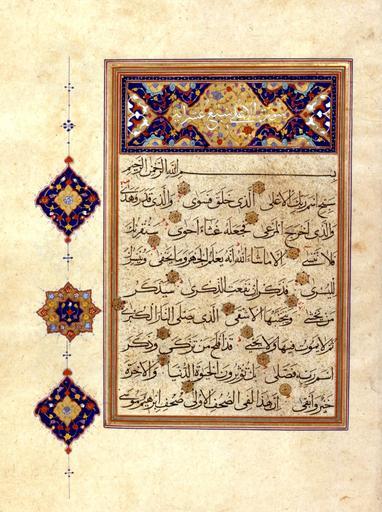 بسم الله الرحمن الرحيم
سبح اسم ربك الاعلى الذي خلق فسوى والذي قدر فهدى
والذي اخرج المرعى فجعله غثاء احوى سنقرئك
فلا تنسى الا ما شاء الله انه يعلم الجهر وما يخفى ونيسرك
لليسرى فذكر ان نفعت الذكرى سيذكر
من يخشى ويتجنبها الاشقى الذي يصلى النار الكبرى
ثم لا يموت فيها ولا يحيى قد افلح من تزكى وذكر
اسم ربه فصلى بل تؤثرون الحيوة الدنيا والآخرة
خير وابقى ان هذا لفي الصحف الاولى صحف ابرهيم وموسى